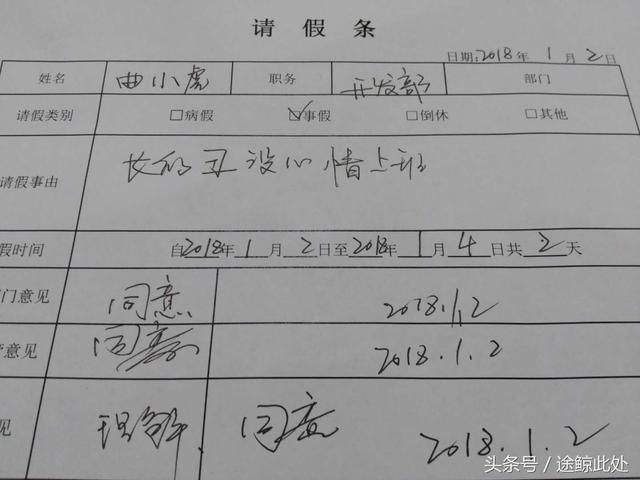 请假条
日期:2018年1月2日
姓名 曲小虎 职务 开发部 部门
请假类别 □病假 ☑事假 □倒休 □其他
请假事由 长的丑没心情上班
假时间 自2018年1月2日至2018年1月4日共2天
门意见 同意 2018.1.2
意见 同意 2018.1.2
见 理解 同意 2018.1.2
头条号 / 途鲸此处